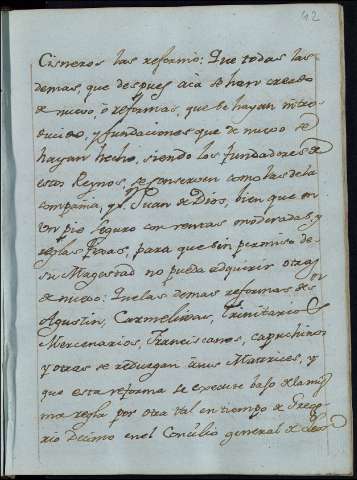 42
Cisneros las reformò: Que todas las
demas, que despues acà se han creado
de nuevo, ò reformas, que se hayan intro-
ducido, y fundaciones que de nuevo se
hayan hecho, siendo los fundadores de
estos Reynos, se conserven como las de la
compañia, y Sn. Juan de Dios, bien que en
un pie seguro con rentas moderadas, y
reglas fixas, para que sin permiso de
su Magestad no pueda adquirir otras
de nuevo: Que las demas reformas de Sn
Agustin, Carmelitas, Trinitarios
Mercenarios, Franciscanos, capuchinos
y otras se reduzgan à sus Matrices, y
que esta reforma se execute bajo de la mis
ma regla por otra tal en tiempo de Grego-
rio Decimo en el Concilio general de Leon